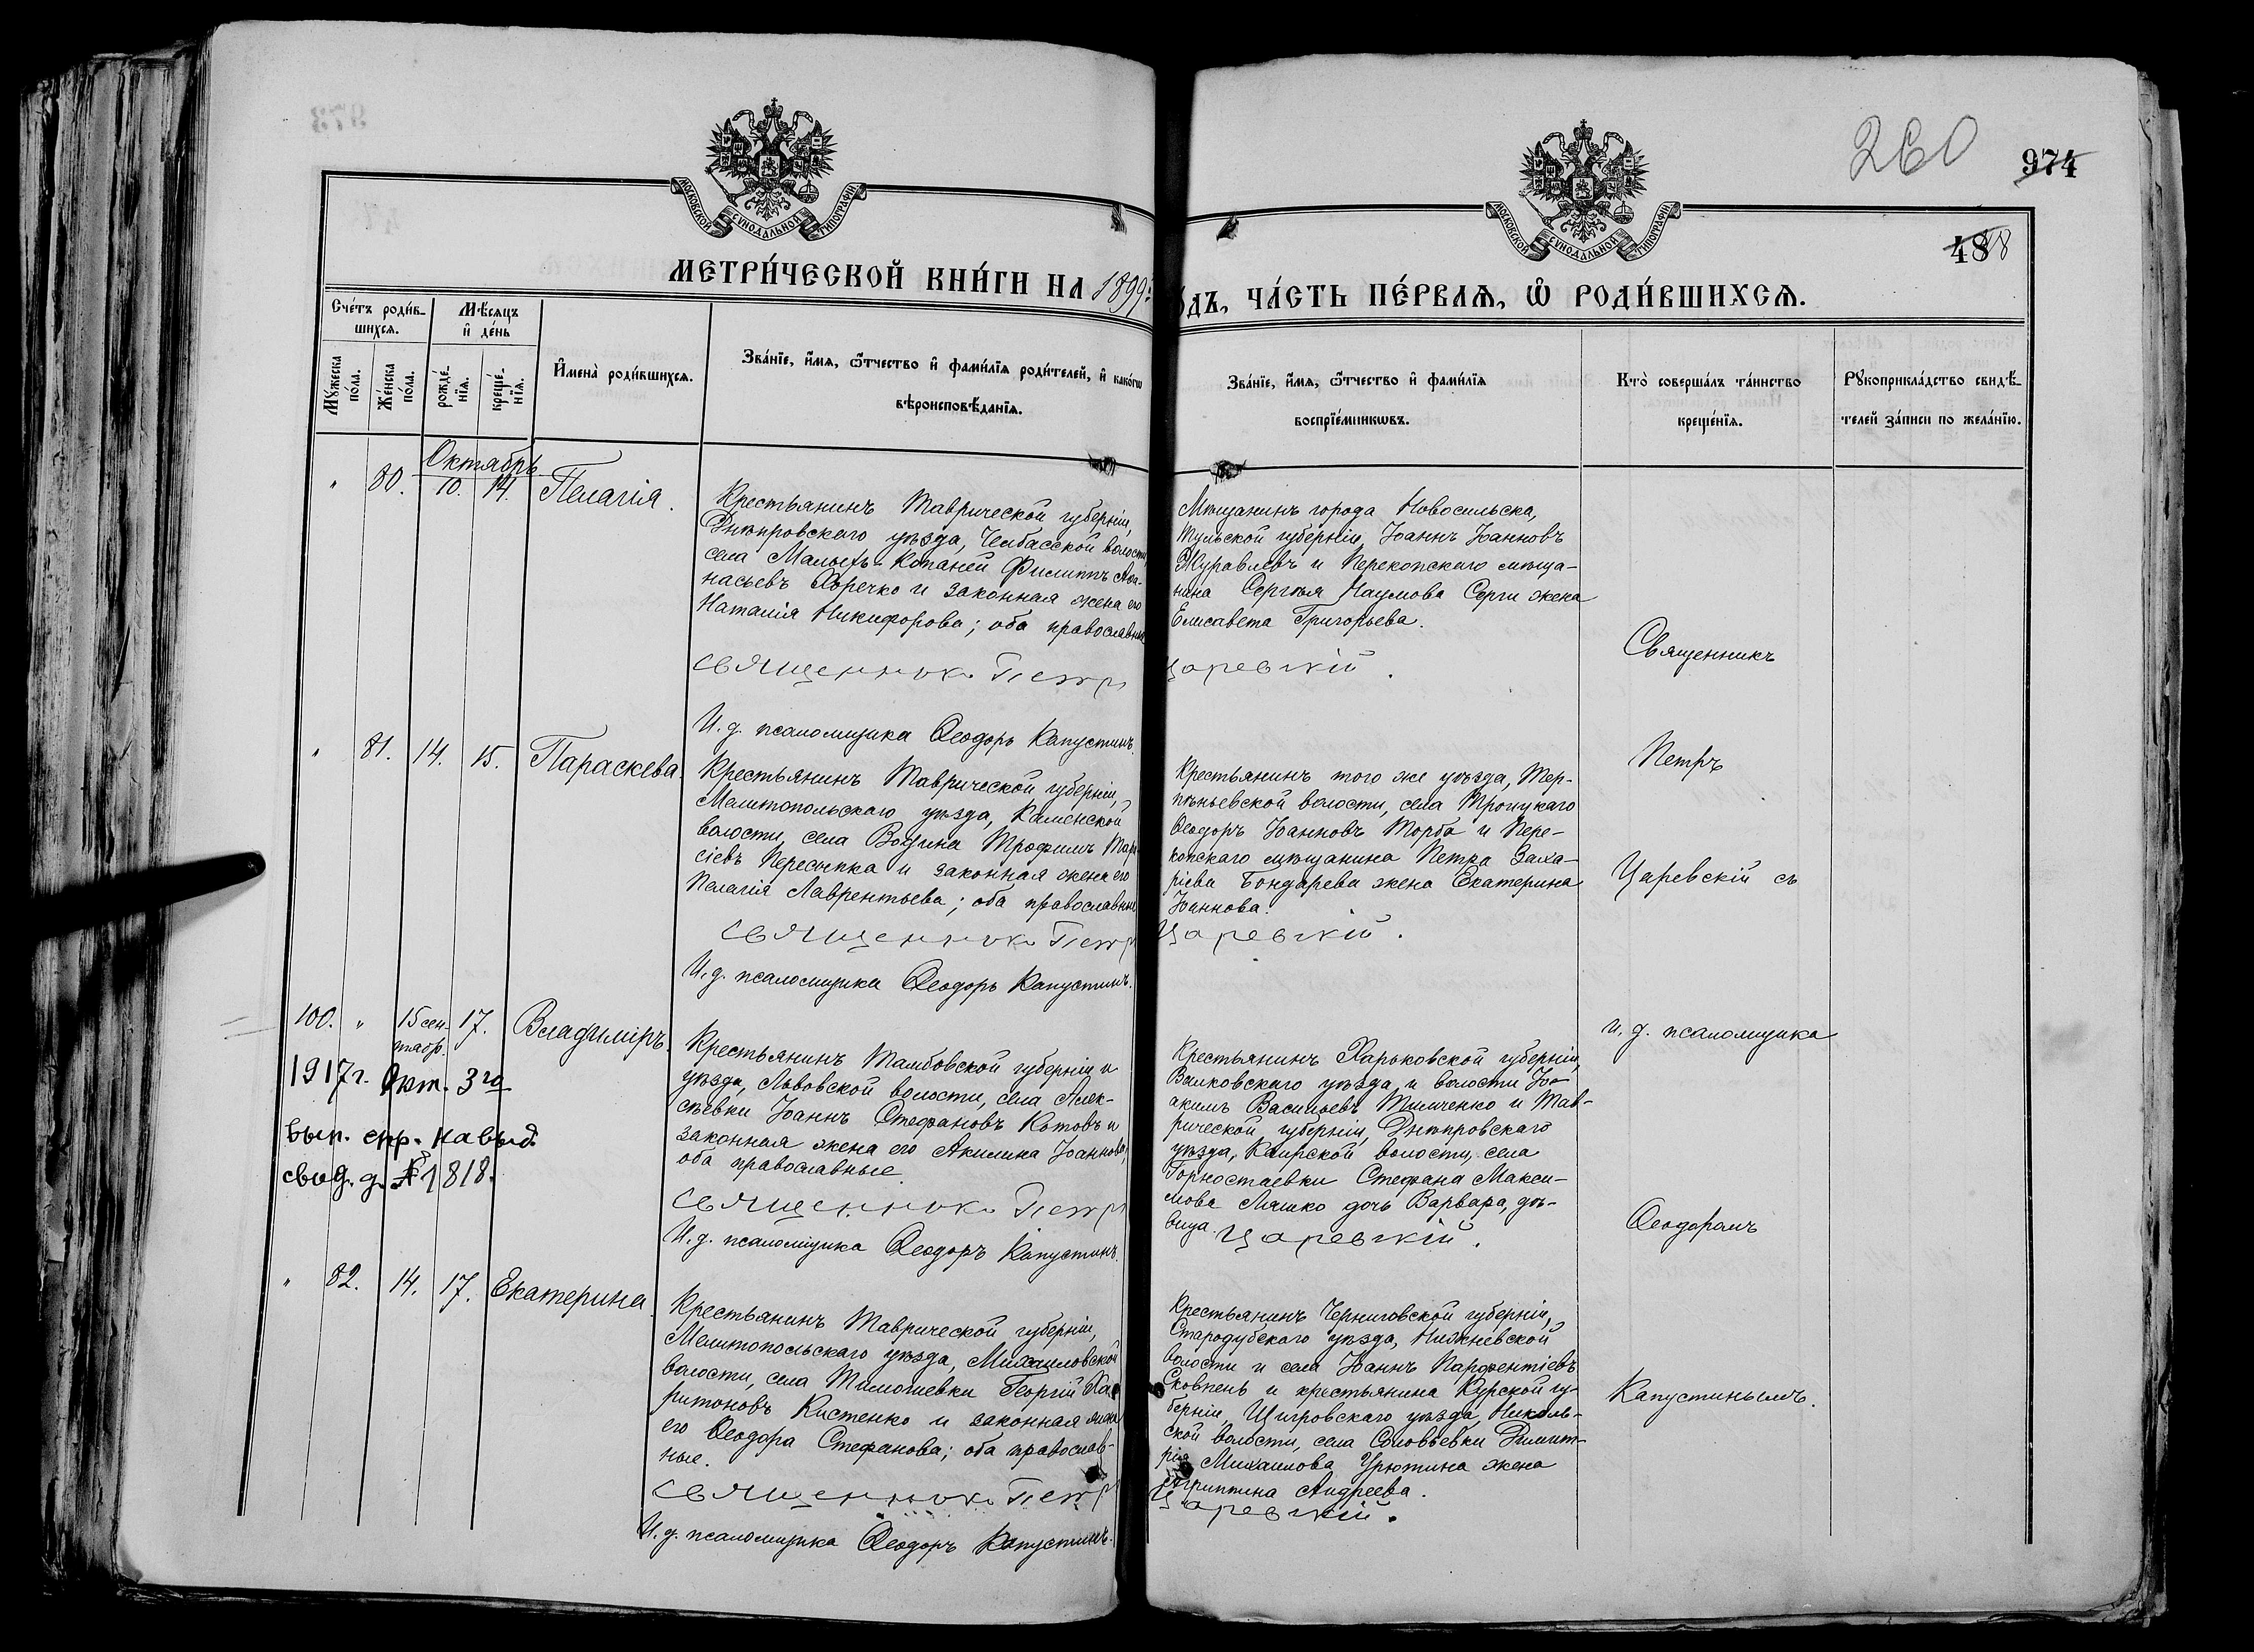 260
974
48 48
МОСКОВСКОЙ СѴНОДАЛЬНОЙ ТИПОГРАФІИ
МОСКОВСКОЙ СѴНОДАЛЬНОЙ ТИПОГРАФІИ
МЕТРИ́ЧЕСКОЙ КНИ́ГИ НА 1899
ОДЪ, ЧА́СТЬ ПЕ́РВАѦ, Ѽ РОДИ́ВШИХСѦ.
Сче́тъ роди́в-
шихсѧ.
Мꙋжеска
по́ла.
Же́нска
по́ла.
Мѣ́сѧцъ
и҆ де́нь
рожде́-
нїѧ.
креще́-
нїѧ.
И҆мена̀ роди́вшихсѧ.
Зва́нїе, и҆́мѧ, ѻ҆́тчество и҆ фами́лїѧ роди́телей, и҆ како́гѡ
вѣроисповѣ́данїѧ.
Зва́нїе, и҆́мѧ, ѻ҆́тчество и҆ фами́лїѧ
воспрїе́мникѡвъ.
Кто̀ соверша́лъ та́инство
креще́нїѧ.
Рꙋкоприкла́дство свидѣ́-
телей за́писи по жела́нїю.
Октябрь
" 80. 10. 14. Пелагія.
Крестьянинъ Таврической губерніи,
Днѣпровскаго уѣзда, Челбасской волости
села Малыхъ-Копаней Филиппъ Аѳа-
насьевъ Хоречко и законная жена его
Наталія Никифорова; оба православные
Священникъ Петръ Царевскій.
И. д. псаломщика Ѳеодоръ Капустинъ.
Мѣщанинъ города Новосильска,
Тульской губерніи, Іоаннъ Іоанновъ
Журавлевъ и Перекопскаго мѣща-
нина Сергѣя Наумова Серги жена
Елисавета Григорьева.
" 81. 14. 15. Параскева.
Крестьянинъ Таврической губерніи,
Мелитопольскаго уѣзда, Каменской
волости, села Водяна Трофимъ Тара-
сіевъ Пересыпка и законная жена его
Пелагія Лаврентьева; оба православные
Священникъ Петръ Царевскій.
И. д. псаломщика Ѳеодоръ Капустинъ.
Крестьянинъ того же уѣзда, Тер-
пѣньевской волости, села Троицкаго
Ѳеодоръ Іоанновъ Торба и Пере-
копскаго мѣщанина Петра Заха-
ріева Бондарева жена Екатерина
Іоаннова.
100. " 15 сен-
тябр. 17. Владиміръ.
1917 г. Окт. 3го
вып. спр. на выд.
свид. д. № 1818.
Крестьянинъ Тамбовской губерніи и
уѣзда, Львовской волости, села Алек-
сѣевки Іоаннъ Стефановъ Котовъ и
законная жена его Акилина Іоаннова,
оба православные.
Священникъ Петръ Царевскій.
И. д. псаломщика Ѳеодоръ Капустинъ.
Крестьянинъ Харьковской губерніи,
Валковскаго уѣзда и волости Іо-
акимъ Васильевъ Тимченко и Тав-
рической губерніи, Днѣпровскаго
уѣзда, Каирской волости, села
Горностаевки Стефана Макси-
мова Ляшко дочь Варвара, дѣ-
вица.
" 82. 14. 17. Екатерина.
Крестьянинъ Таврической губерніи,
Мелитопольскаго уѣзда, Михайловской
волости, села Тимошевки Георгій Ха-
ритоновъ Кистенко и законная жена
его Ѳеодора Стефанова; оба православ-
ные.
Священникъ Петръ Царевскій.
И. д. псаломщика Ѳеодоръ Капустинъ.
Крестьянинъ Черниговской губерніи,
Стародубскаго уѣзда, Нижневской
волости и села Іоаннъ Парфентіевъ
Сковпень и крестьянина Курской гу-
берніи, Щигровскаго уѣзда, Николь-
ской волости, села Соловьевки Димит-
рія Михаилова Урютина жена
Агриппина Андреева.
Священникъ
Петръ
Царевскій съ
и. д. псаломщика
Ѳеодоромъ
Капустинымъ.